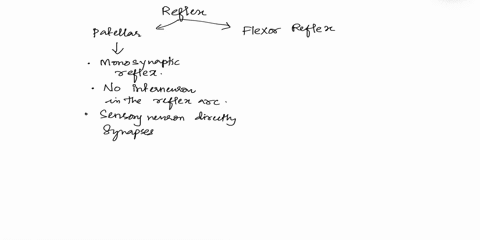 Reflex
Patellas
Flexor Reflex
• Monosynaptic
reflex.
• No interneuron
in the reflex arc.
• Sensory neuron directly
Synapses